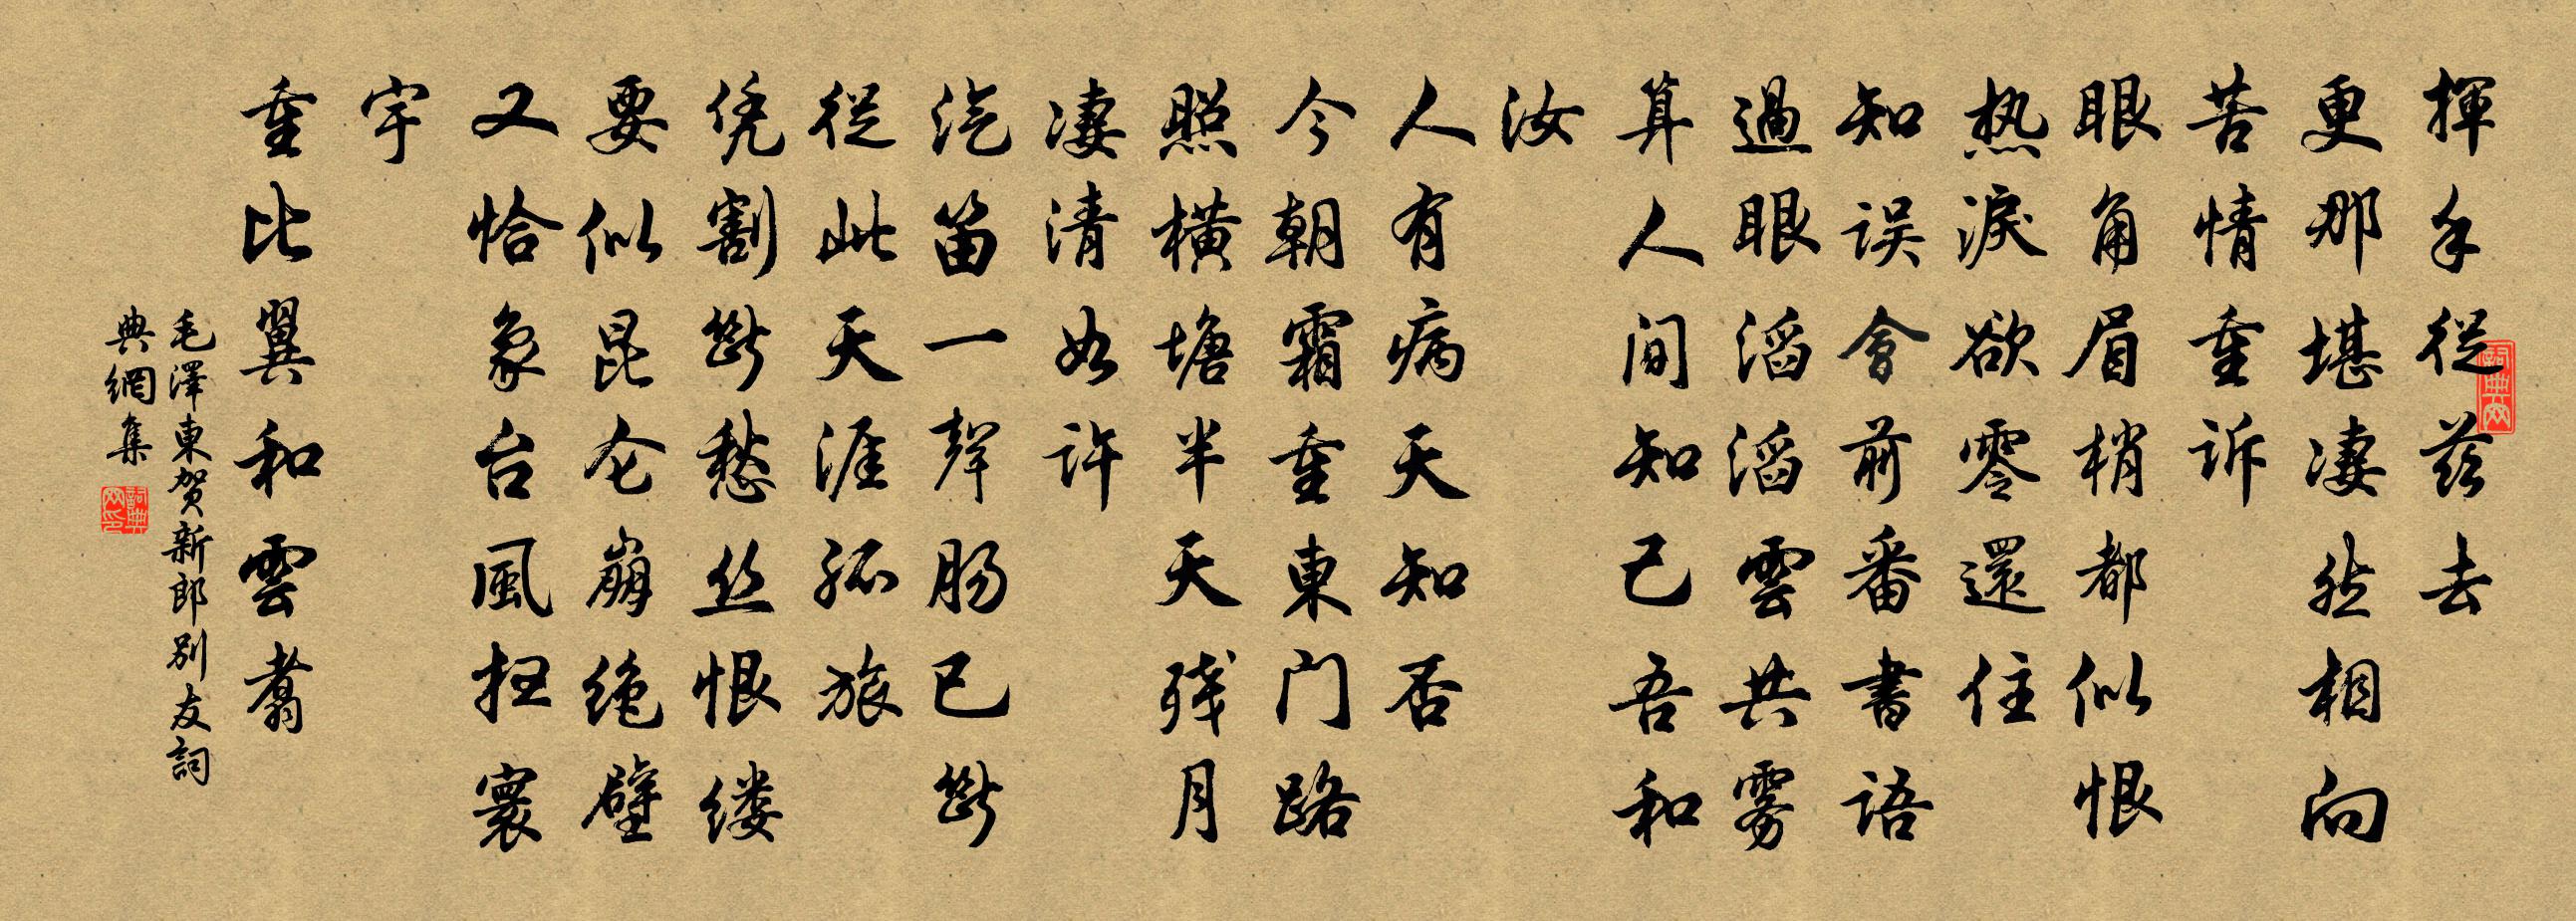 揮手從茲去
更那堪凄然相向
苦情重诉
眼角眉梢都似恨
热淚欲零還住
知误會前番書語
過眼滔滔雲共雾
算人间知己吾和
汝
人有病天知否
今朝霜重東门路
照橫塘半天残月
凄清如许
汽笛一聲肠已斷
從此天涯孤旅
凭割斷愁丝恨缕
要似昆仑崩绝壁
又恰象台風扫寰
宇
重比翼和雲翥
毛澤東贺新郎别友詞
典網集